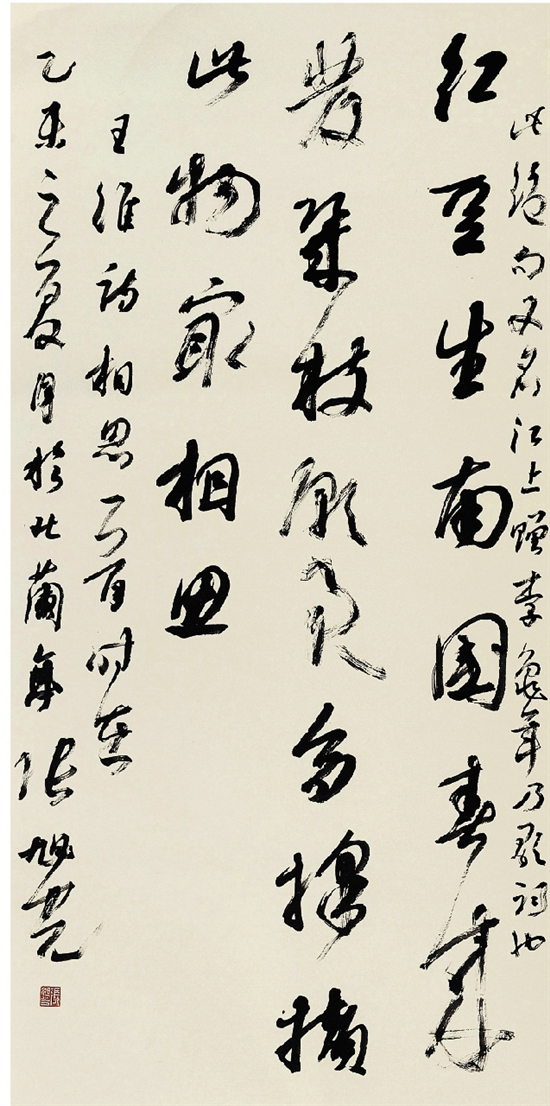 此絕句又名江上贈李龜年乃歌詞也
紅豆生南國春來
發幾枝願君多採摘
此物最相思
王維詩相思一首時在
乙未之夏月於北蘭亭張旭光